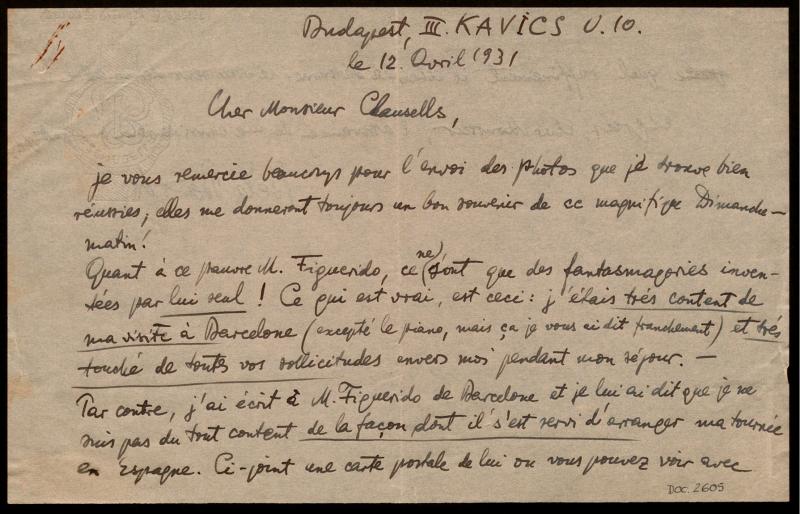 Budapest, III. KAVICS U. 10.
le 12. Avril 1931
Cher Monsieur Clausells,
je vous remercie beaucoup pour l'envoi des photos que je trouve bien
réussies; elles me donneront toujours un bon souvenir de ce magnifique Dimanche-
matin!
Quant à ce pauvre M. Figuerido, ce (ne) sont que des fantasmagories inven-
tées par lui seul! Ce qui est vrai, est ceci: j'étais très content de
ma visite à Barcelone (excepté le piano, mais ça je vous ai dit franchement) et très
touché de toutes vos sollicitudes envers moi pendant mon séjour. —
Par contre, j'ai écrit à M. Figuerido de Barcelone et je lui ai dit que je ne
suis pas du tout content de la façon dont il s'est servi d'arranger ma tournée
en Espagne. Ci-joint une carte postale de lui ou vous pouvez voir avec
DOC. 2605